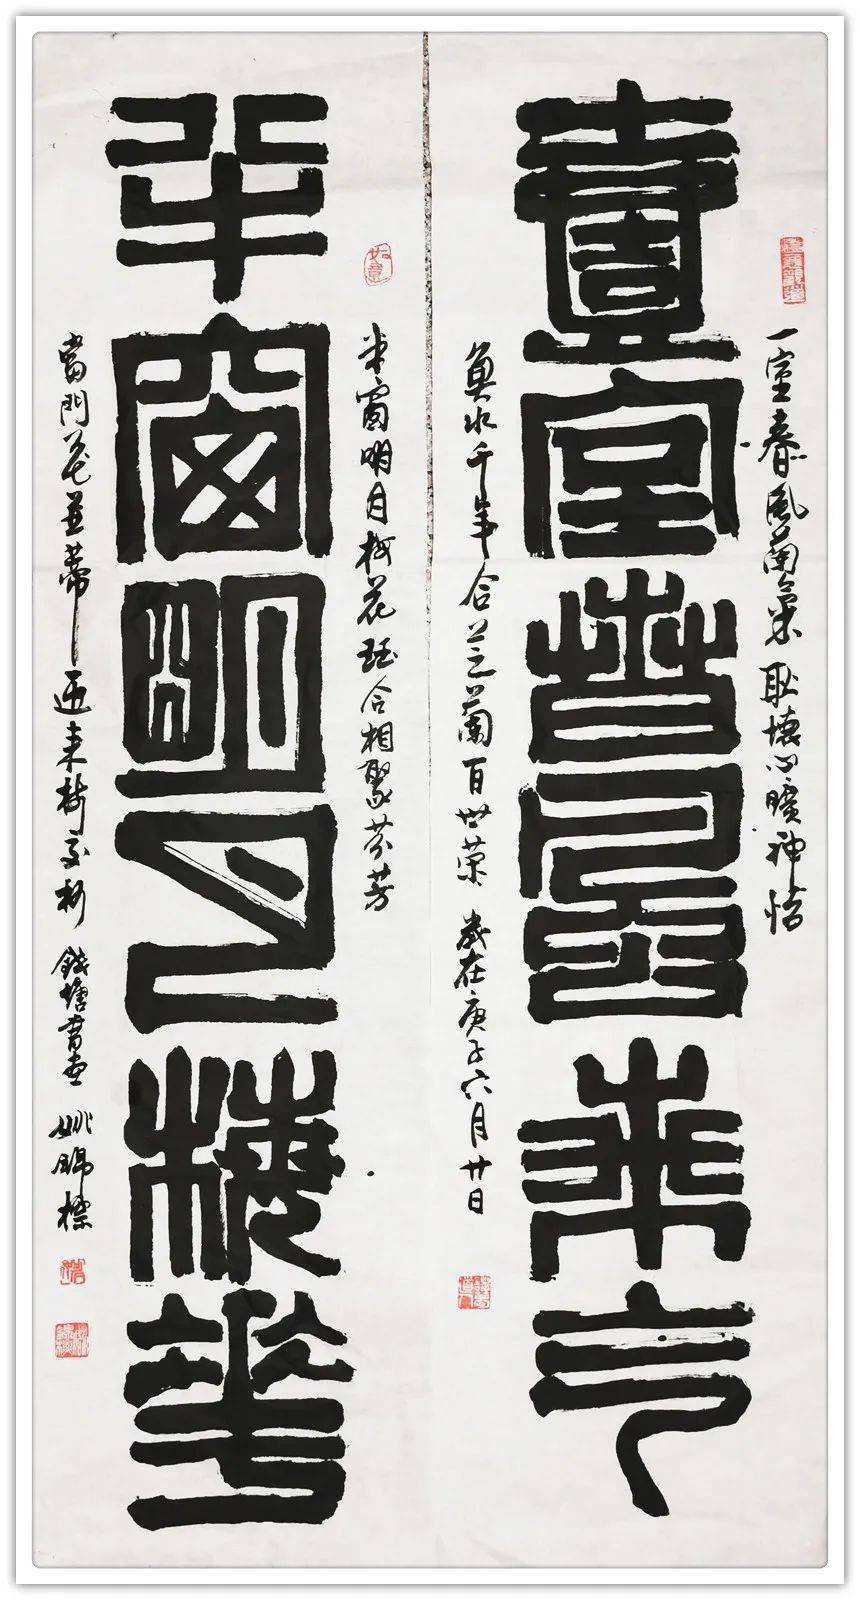 一室春風蘭氣耿懷心曠神怡
壹室春風气
魚水千年合芝蘭百世榮 歲在庚子六月廿日
半窗明月梅花珏合相聚芬芳
如意
半窗明月梅花
當門花並蒂迎来樹交柯 錢塘書画 姚錦標